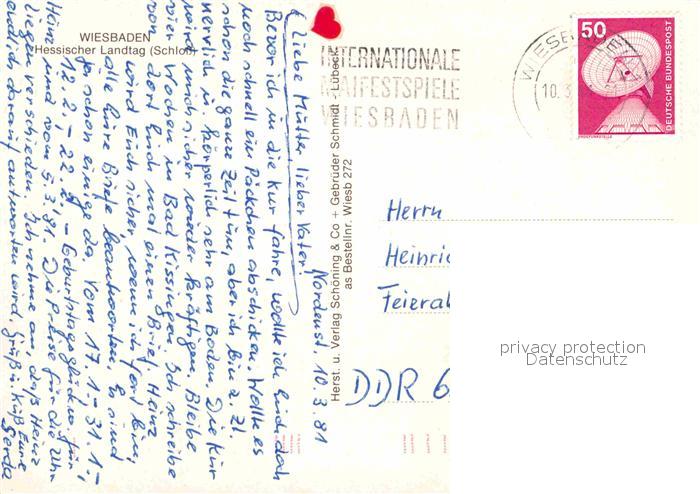 WIESBADEN
Hessischer Landtag (Schloß)
Nordenst. 10.3.81
Liebe Mutter, lieber Vater!
Bevor ich in die Kur fahre, wollte ich Euch doch
noch schnell ein Päckchen abschicken. Wollte es
schon die ganze Zeit tun, aber ich bin z. Zt.
nervlich u. körperlich sehr am Boden. Die Kur
wird mich sicher wieder kräftigen. Bleibe
vier Wochen in Bad Kissingen. Ich schreibe
von dort Euch mal einen Brief. Heinz
wird Euch sicher, wenn ich fort bin,
alle Eure Briefe beantworten. Es sind
ja schon einige da. Vom 17.1. - 31.1. -
12.2. - 22.2. - Geburtstagsglückw. für
Heinz und vom 5.3.81. Die Preise für die Uhr
liegen verschieden. Ich nehme an, daß Heinz
endlich darauf antworten wird. Gruß u. Kuß Eure
Gerda
Herst. u. Verlag Schöning & Co + Gebrüder Schmidt · Lübeck
as Bestellnr. Wiesb 272
INTERNATIONALE
MAIFESTSPIELE
WIESBADEN
WIESBADEN
10.3
50
DEUTSCHE BUNDESPOST
ERDFUNKSTELLE
Herrn
Heinric
Feierab
DDR 6
privacy protection
Datenschutz